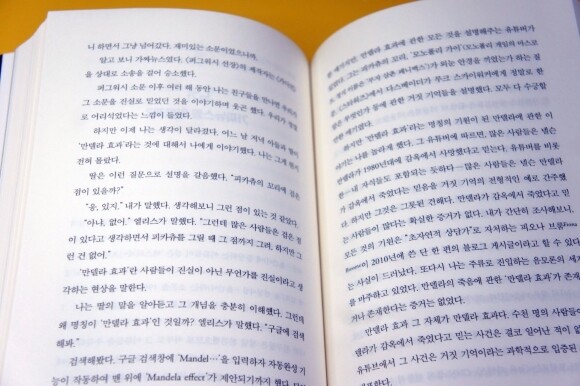 니 하면서 그냥 넘어갔다. 재미있는 소문이었으니까.
알고 보니 가짜뉴스였다. 〈퍼그워시 선장〉의 제작자는
을 상대로 소송을 걸어 승소했다.
퍼그워시 소문 이후 여러 해 동안 나는 친구들을 만나면 우리가
그 소문을 진실로 믿었던 것을 이야기하며 웃곤 했다. 우리가 정말
로 어리석었다는 느낌이 들었다.
하지만 이제 나는 생각이 달라졌다. 어느 날 저녁 아들과 딸이
'만델라 효과'라는 것에 대해서 나에게 이야기했다. 나는 그게 뭔지
전혀 몰랐다.
딸은 이런 질문으로 설명을 갈음했다. “피카츄의 꼬리에 검은
점이 있을까?”
“응, 있지.” 내가 말했다. 생각해보니 그런 점이 있는 것 같았다.
“아냐, 없어.” 엘리스가 말했다. “그런데 많은 사람들은 검은 점
이 있다고 생각하면서 피카츄를 그릴 때 그 점까지 그려. 하지만 그
런 건 없어.”
'만델라 효과'란 사람들이 진실이 아닌 무언가를 진실이라고 생
각하는 현상을 말한다.
나는 딸의 말을 알아듣고 그 개념을 충분히 이해했다. 그런데
왜 명칭이 '만델라 효과'인 것일까? 엘리스가 말했다. “구글에 검색
해봐.”
검색해봤다. 구글 검색창에 'Mandel…'을 입력하자 자동완성 기
능이 작동하여 맨 위에 'Mandela effect'가 제안되기까지 했다.
만델라 효과에 관한 모든 것을 설명해주는 유튜버가
그는 피카츄의 꼬리, '모노폴리 가이'(모노폴리 게임의 마스코
한 얘기였다.
하지만 '만델라 효과'라는 명칭의 기원이 된 만델라에 관한 이
야기는 나를 놀라게 했다. 그 유튜버에 따르면, 많은 사람들은 넬슨
만델라가 1980년대에 감옥에서 사망했다고 믿는다. 유튜버를 비롯
한—내 자식들도 포함되는 듯하다—많은 사람들은 넬슨 만델라
가 감옥에서 죽었다는 믿음을 거짓 기억의 전형적인 예로 간주했
다. 하지만 그것은 그릇된 견해다. 만델라가 감옥에서 죽었다고 믿
는 사람들이 많다는 확실한 증거가 없다. 내가 간단히 조사해보니,
모든 것의 기원은 “초자연적 상담가”로 자처하는 피오나 브룸Fiona
Broome이 2010년에 쓴 단 한 편의 블로그 게시글이라고 할 수 있다
는 사실이 드러났다. 또다시 나는 주류로 진입하는 유모론의 세계
를 마주하고 있었다. 만델라의 죽음에 관한 '만델라 효과'가 존재
거나 존재한다는 증거는 없었다.
만델라 효과 그 자체가 만델라 효과다. 수천 명의 사람이
델라가 감옥에서 죽었다고 믿는 사건은 결코 일어난 적이 없
유튜브에서 그 사건은 거짓 기억이라는 과학적으로 입증된